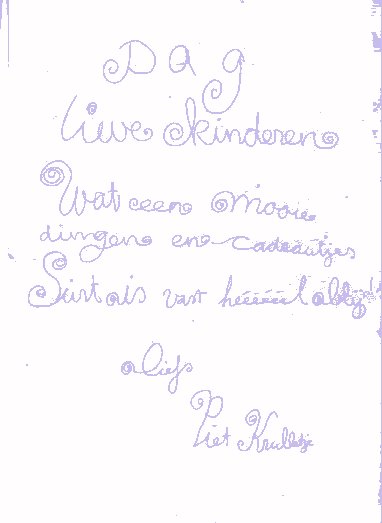 Dag
lieve kinderen
Wat een mooie
dingen en cadeautjes
Sint is vast héééééél blij!
liefs
Piet Krulletje